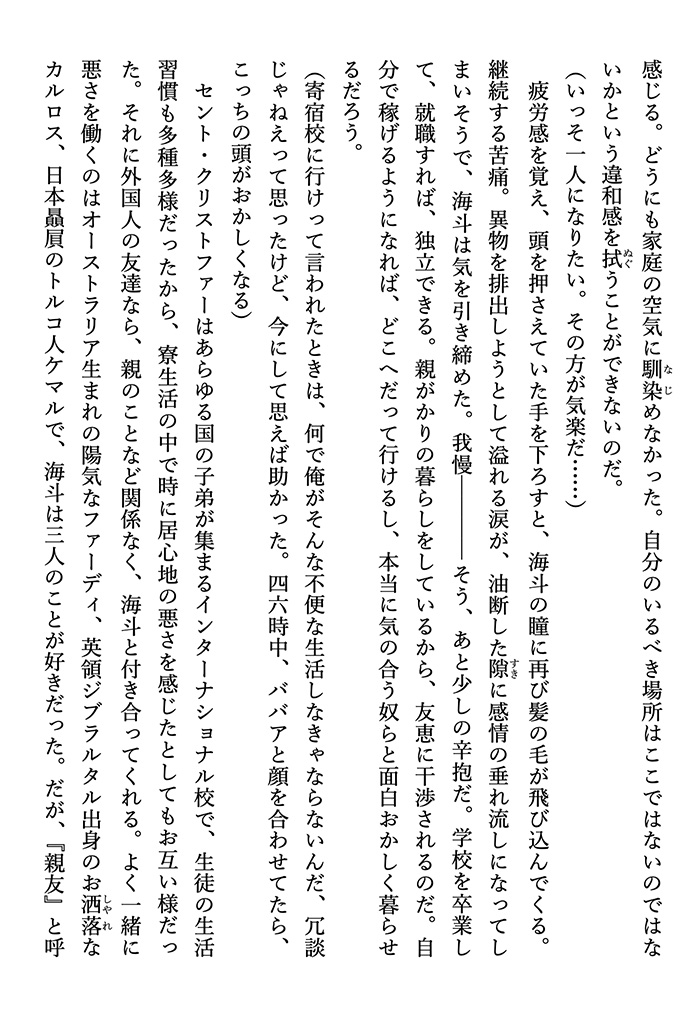 感じる。どうにも家庭の空気に馴染めなかった。自分のいるべき場所はここではないのではな
いかという違和感を拭うことができないのだ。
（いっそ一人になりたい。その方が気楽だ……）
　疲労感を覚え、頭を押さえていた手を下ろすと、海斗の瞳に再び髪の毛が飛び込んでくる。
継続する苦痛。異物を排出しようとして溢れる涙が、油断した隙に感情の垂れ流しになってし
まいそうで、海斗は気を引き締めた。我慢――そう、あと少しの辛抱だ。学校を卒業し
て、就職すれば、独立できる。親がかりの暮らしをしているから、友恵に干渉されるのだ。自
分で稼げるようになれば、どこへだって行けるし、本当に気の合う奴らと面白おかしく暮らせ
るだろう。
（寄宿校に行けって言われたときは、何で俺がそんな不便な生活しなきゃならないんだ、冗談
じゃねえって思ったけど、今にして思えば助かった。四六時中、ババアと顔を合わせてたら、
こっちの頭がおかしくなる）
　セント・クリストファーはあらゆる国の子弟が集まるインターナショナル校で、生徒の生活
習慣も多種多様だったから、寮生活の中で時に居心地の悪さを感じたとしてもお互い様だっ
た。それに外国人の友達なら、親のことなど関係なく、海斗と付き合ってくれる。よく一緒に
悪さを働くのはオーストラリア生まれの陽気なファーディ、英領ジブラルタル出身のお洒落な
カルロス、日本贔屓のトルコ人ケマルで、海斗は三人のことが好きだった。だが、『親友』と呼